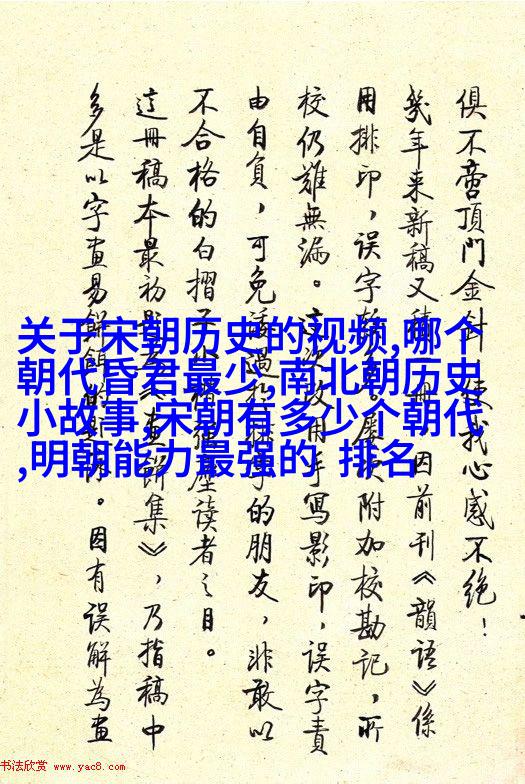 关于宋朝历史的视频,哪个
朝代昏君最少,南北朝历史
小故事,宋朝有多少个朝代
,明朝能力最强的 排名
俱不啻頂門金針 使我心感不絕！
幾年來新稿又積 冊 因前刊《韻語》係
用排印，誤字 屢 附加校勘記，所
校仍難無漏。這次改用手寫影印，誤字責
由自負，可免 過 排字的朋友，非敢以
不合格的白摺子小楷 塵讀者之目。
這冊稿本最初 《畫餅集》，乃指稿中
多是以字畫易餅餌的 。因有誤解為畫
书法欣赏 www.yac8.com